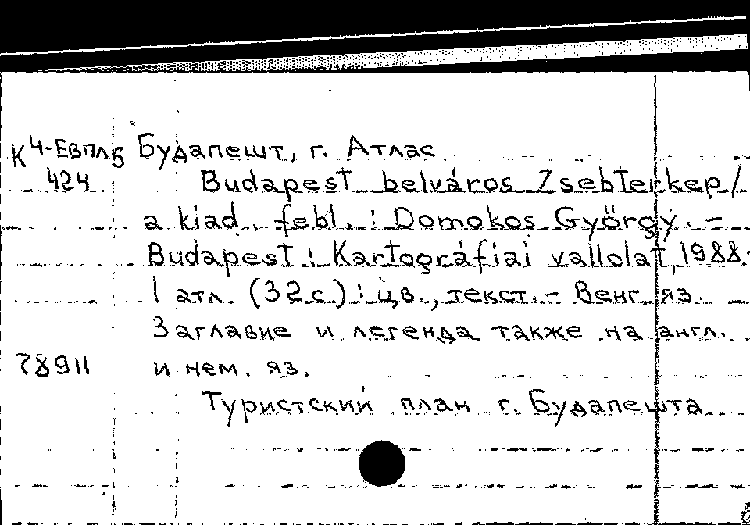 К4-Евпл5 Будапешт, г. Атлас
424 Budapest belváros Zsebterkep /
a kiad. febl. : Domokos György. –
Budapest : Kartográfiai vallolat, 1988.
1 атл. (32 с) : цв., текст. – Венг. яз.
Заглавие и легенда также на англ.
78911 и нем. яз.
Туристский план г. Будапешта